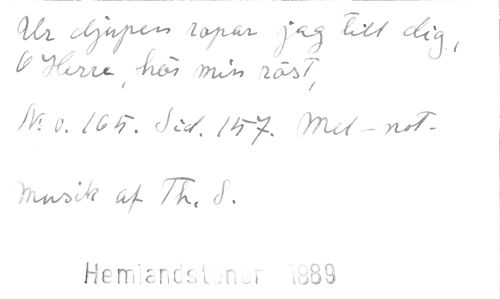 Ur djupen ropar jag till dig,
O Herre, hör min röst,
No. 165. Sid. 157. Mel-not.
Musik af Th. S.
Hemlandstoner 1889